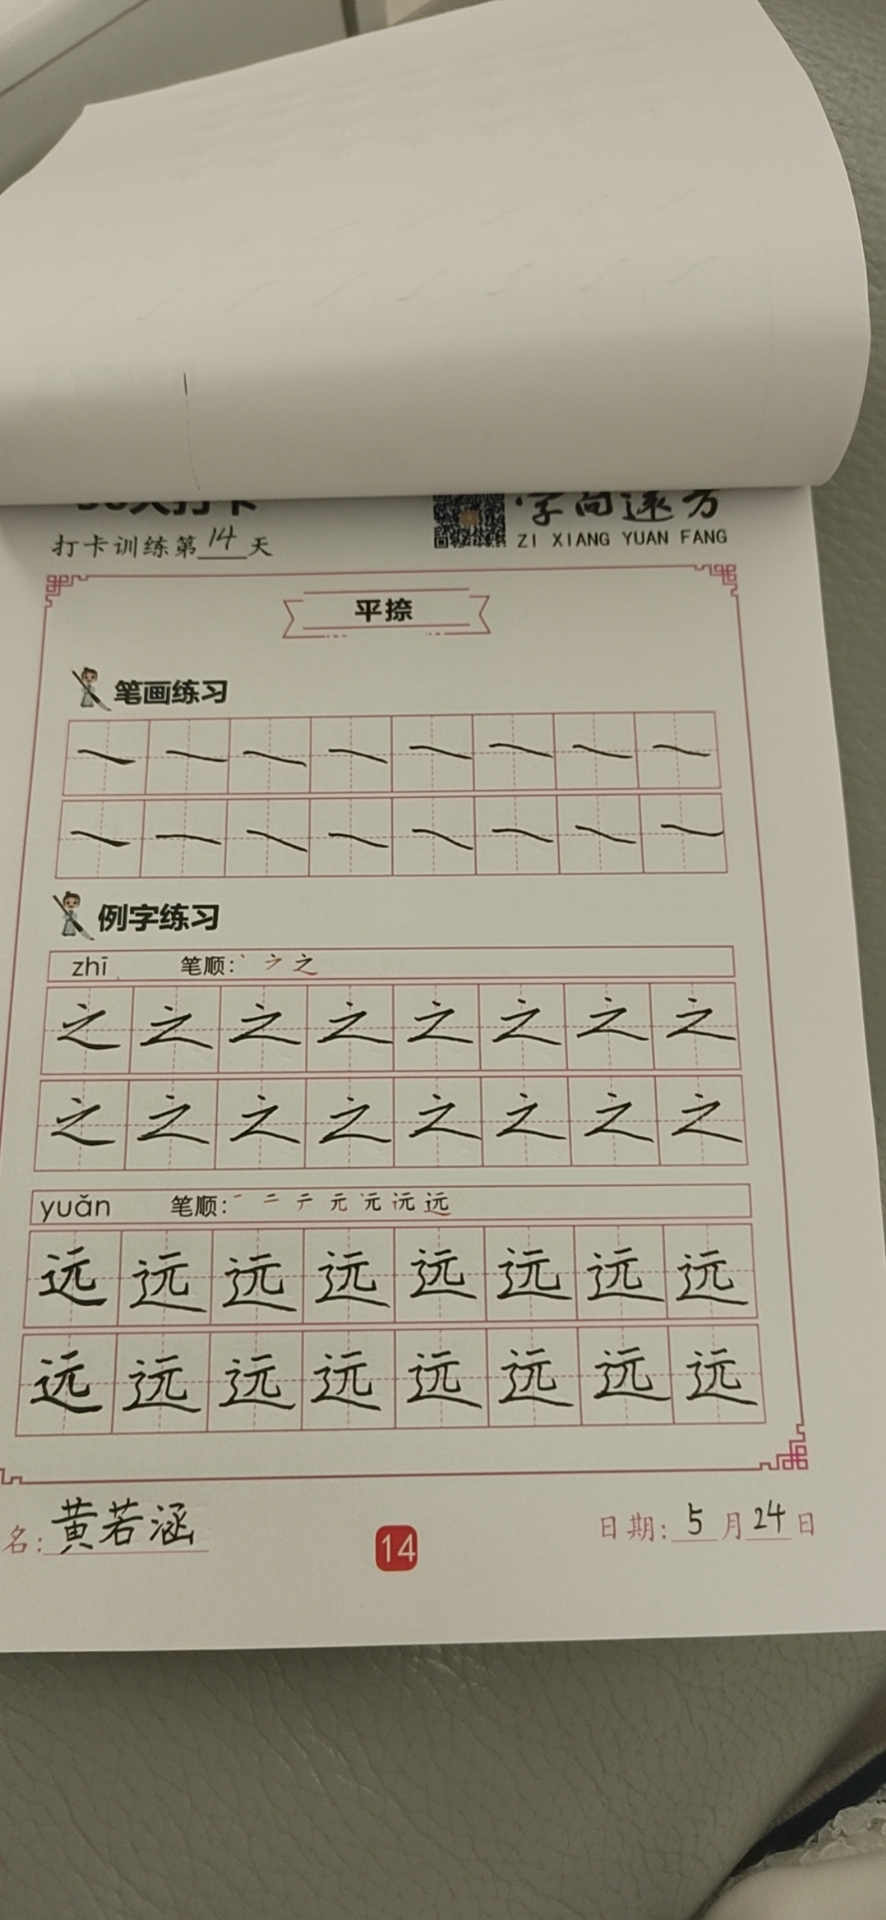 字向远方
打卡训练第14天
ZI XIANG YUAN FANG
平捺
笔画练习
例字练习
zhī 笔顺：丶 之
之之之之之之之之
之之之之之之之之
yuǎn 笔顺：一 二 テ 元 远
远远远远远远远远
远远远远远远远远
名：黄若涵
14
日期：5月24日